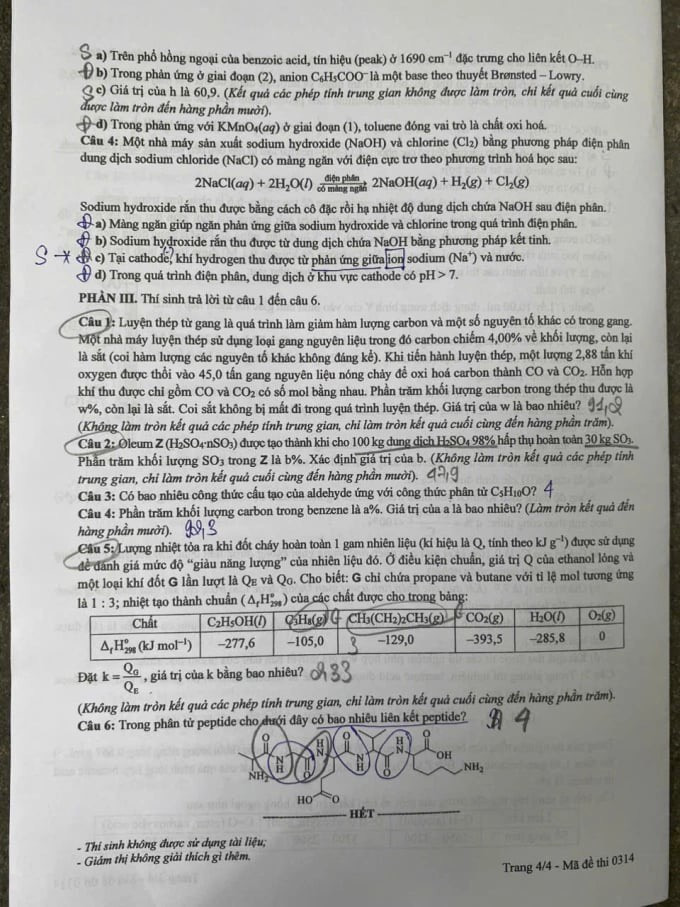 S a) Trên phổ hồng ngoại của benzoic acid, tín hiệu (peak) ở 1690 cm⁻¹ đặc trưng cho liên kết O–H.
Đ b) Trong phản ứng ở giai đoạn (2), anion C₆H₅COO⁻ là một base theo thuyết Brønsted – Lowry.
S c) Giá trị của h là 60,9. (Kết quả các phép tính trung gian không được làm tròn, chỉ kết quả cuối cùng
được làm tròn đến hàng phần mười).
Đ d) Trong phản ứng với KMnO₄(aq) ở giai đoạn (1), toluene đóng vai trò là chất oxi hoá.
Câu 4: Một nhà máy sản xuất sodium hydroxide (NaOH) và chlorine (Cl₂) bằng phương pháp điện phân
dung dịch sodium chloride (NaCl) có màng ngăn với điện cực trơ theo phương trình hoá học sau:
điện phân
2NaCl(aq) + 2H₂O(l) → 2NaOH(aq) + H₂(g) + Cl₂(g)
có màng ngăn
Sodium hydroxide rắn thu được bằng cách cô đặc rồi hạ nhiệt độ dung dịch chứa NaOH sau điện phân.
Đ a) Màng ngăn giúp ngăn phản ứng giữa sodium hydroxide và chlorine trong quá trình điện phân.
Đ b) Sodium hydroxide rắn thu được từ dung dịch chứa NaOH bằng phương pháp kết tinh.
S c) Tại cathode, khí hydrogen thu được từ phản ứng giữa ion sodium (Na⁺) và nước.
Đ d) Trong quá trình điện phân, dung dịch ở khu vực cathode có pH > 7.
PHẦN III. Thí sinh trả lời từ câu 1 đến câu 6.
Câu 1: Luyện thép từ gang là quá trình làm giảm hàm lượng carbon và một số nguyên tố khác có trong gang.
Một nhà máy luyện thép sử dụng loại gang nguyên liệu trong đó carbon chiếm 4,00% về khối lượng, còn lại
là sắt (coi hàm lượng các nguyên tố khác không đáng kể). Khi tiến hành luyện thép, một lượng 2,88 tấn khí
oxygen được thổi vào 45,0 tấn gang nguyên liệu nóng chảy để oxi hoá carbon thành CO và CO₂. Hỗn hợp
khí thu được chỉ gồm CO và CO₂ có số mol bằng nhau. Phần trăm khối lượng carbon trong thép thu được là
w%, còn lại là sắt. Coi sắt không bị mất đi trong quá trình luyện thép. Giá trị của w là bao nhiêu?
(Không làm tròn kết quả các phép tính trung gian, chỉ làm tròn kết quả cuối cùng đến hàng phần trăm).
Câu 2: Oleum Z (H₂SO₄·nSO₃) được tạo thành khi cho 100 kg dung dịch H₂SO₄ 98% hấp thụ hoàn toàn 30 kg SO₃.
Phần trăm khối lượng SO₃ trong Z là b%. Xác định giá trị của b. (Không làm tròn kết quả các phép tính
trung gian, chỉ làm tròn kết quả cuối cùng đến hàng phần mười). 42,9
Câu 3: Có bao nhiêu công thức cấu tạo của aldehyde ứng với công thức phân tử C₅H₁₀O? 4
Câu 4: Phần trăm khối lượng carbon trong benzene là a%. Giá trị của a là bao nhiêu? (Làm tròn kết quả đến
hàng phần mười). 92,3
Câu 5: Lượng nhiệt tỏa ra khi đốt cháy hoàn toàn 1 gam nhiên liệu (kí hiệu là Q, tính theo kJ g⁻¹) được sử dụng
để đánh giá mức độ “giàu năng lượng” của nhiên liệu đó. Ở điều kiện chuẩn, giá trị Q của ethanol lỏng và
một loại khí đốt G lần lượt là Q_E và Q_G. Cho biết: G chỉ chứa propane và butane với tỉ lệ mol tương ứng
là 1 : 3; nhiệt tạo thành chuẩn (Δ_fH°₂₉₈) của các chất được cho trong bảng:
Chất C₂H₅OH(l) C₃H₈(g) CH₃(CH₂)₂CH₃(g) CO₂(g) H₂O(l) O₂(g)
Δ_fH°₂₉₈ (kJ mol⁻¹) –277,6 –105,0 –129,0 –393,5 –285,8 0
1 3
Đặt k = Q_G/Q_E, giá trị của k bằng bao nhiêu?
(Không làm tròn kết quả các phép tính trung gian, chỉ làm tròn kết quả cuối cùng đến hàng phần trăm).
Câu 6: Trong phân tử peptide cho dưới đây có bao nhiêu liên kết peptide? 4
O H N O H N O
OH
NH₂ N H O N H O NH₂
HO O
HẾT
- Thí sinh không được sử dụng tài liệu;
- Giám thị không giải thích gì thêm.
Trang 4/4 - Mã đề thi 0314